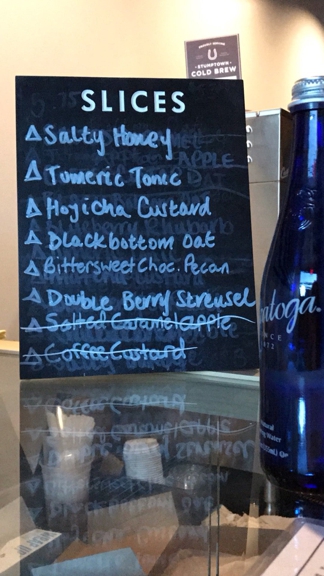 STUMPTOWN
COLD BREW
SLICES
Δ Salty Honey
Δ Tumeric Tonic
Δ Hojicha Custard
Δ Blackbottom Oat
Δ Bittersweet Choc. Pecan
Δ Double Berry Streusel
Δ Salted Caramel apple
Δ Coffee Custard
toga